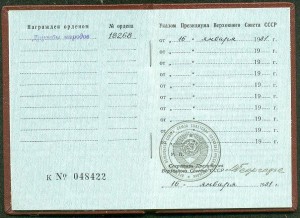 Награжден орденом № ордена
Дружбы народов 18268
К № 048422
Указом Президиума Верховного Совета СССР
от „ 16 „ января 1981 г.
от „ „ 19 г.
от „ „ 19 г.
от „ „ 19 г.
от „ „ 19 г.
от „ „ 19 г.
от „ „ 19 г.
от „ „ 19 г.
Секретарь Президиума
Верховного Совета
„ 16 „ января 1981 г.